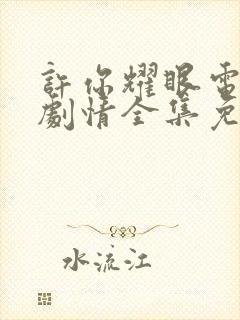 許你耀眼電
劇情全集免
水流江